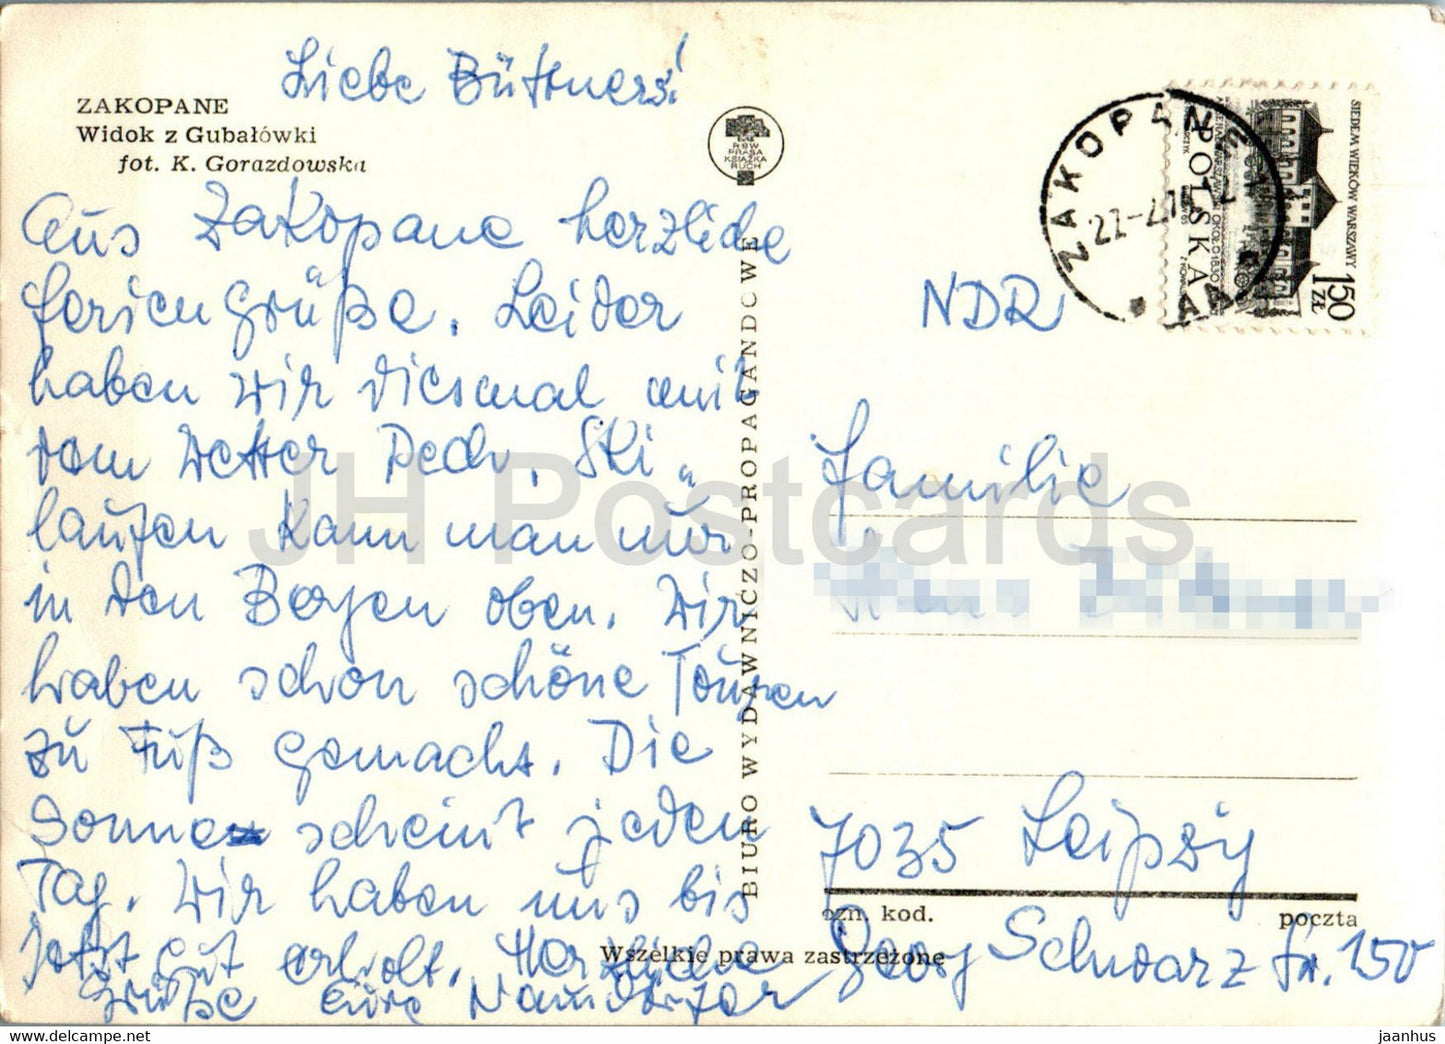 Liebe Büttners!
ZAKOPANE
Widok z Gubałówki
fot. K. Gorazdowska
RSW
PRASA
KSIĄŻKA
RUCH
Aus Zakopane herzliche
Feriengrüße. Leider
haben wir diesmal mit
dem Wetter Pech. Ski-
laufen kann man nur
in den Bergen oben. Wir
haben schon schöne Touren
zu Fuß gemacht. Die
Sonne scheint jeden
Tag. Wir haben uns bis
jetzt gut erholt. Herzliche
Grüße Eure Naundorfer
BIURO WYDAWNICZO-PROPAGANDOWE
Wszelkie prawa zastrzeżone
ZAKOPANE 1
SIEDEM WIEKÓW WARSZAWY
POLSKA
150 ZŁ
NDR
Familie
7035 Leipzig
ozn. kod. poczta
Georg Schwarz Str. 150
JH Postcards
jaanhus